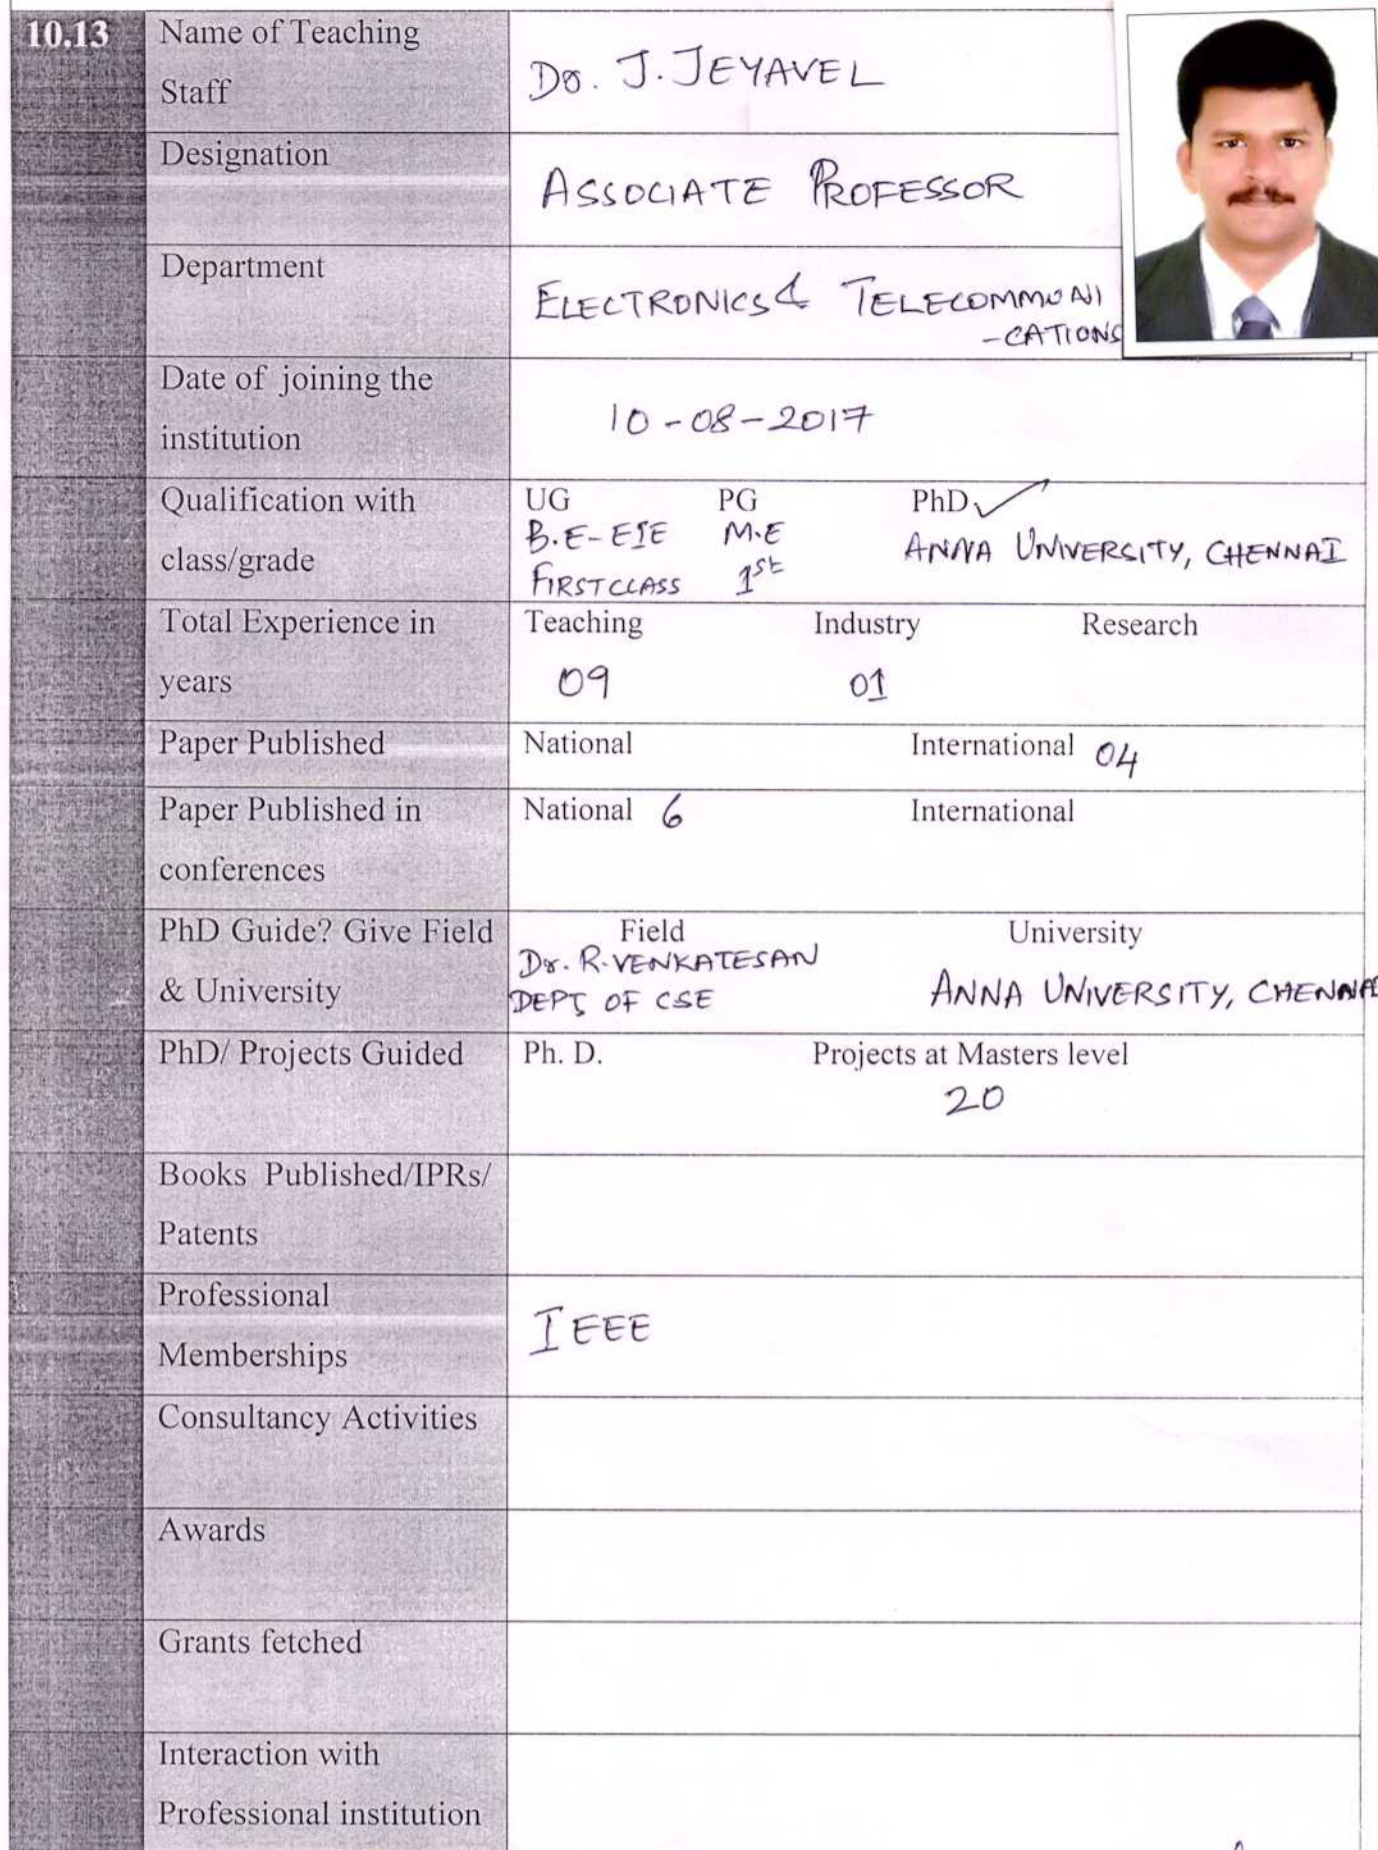 10.13
Name of Teaching
Staff
Dr. J. JEYAVEL
Designation
ASSOCIATE PROFESSOR
Department
ELECTRONICS & TELECOMMUNI
-CATIONS
Date of joining the
institution
10-08-2017
Qualification with
class/grade
UG PG PhD ✓
B.E-EIE M.E ANNA UNIVERSITY, CHENNAI
FIRST CLASS 1st
Total Experience in
years
Teaching Industry Research
09 01
Paper Published
National International 04
Paper Published in
conferences
National 6 International
PhD Guide? Give Field
& University
Field University
Dr. R. VENKATESAN
DEPT OF CSE ANNA UNIVERSITY, CHENNAI
PhD/ Projects Guided
Ph. D. Projects at Masters level
20
Books Published/IPRs/
Patents
Professional
Memberships
IEEE
Consultancy Activities
Awards
Grants fetched
Interaction with
Professional institution